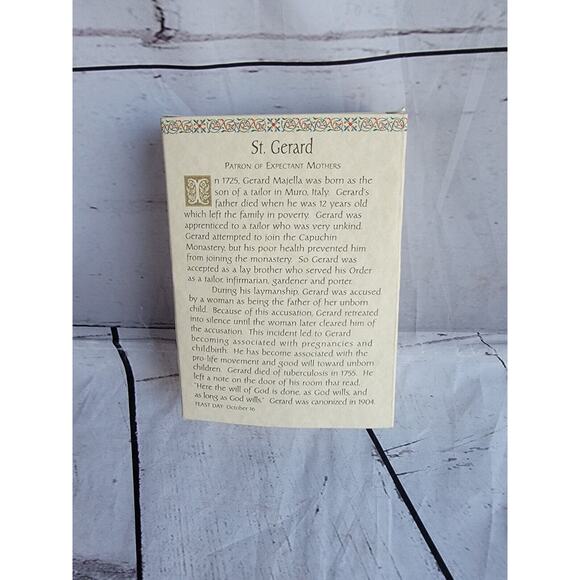 St. Gerard
Patron of Expectant Mothers
In 1725, Gerard Majella was born as the
son of a tailor in Muro, Italy. Gerard's
father died when he was 12 years old
which left the family in poverty. Gerard was
apprenticed to a tailor who was very unkind.
Gerard attempted to join the Capuchin
Monastery, but his poor health prevented him
from joining the monastery. So Gerard was
accepted as a lay brother who served his Order
as a tailor, infirmarian, gardener and porter.
During his laymanship, Gerard was accused
by a woman as being the father of her unborn
child. Because of this accusation, Gerard retreated
into silence until the woman later cleared him of
the accusation. This incident led to Gerard
becoming associated with pregnancies and
childbirth. He has become associated with the
pro-life movement and good will toward unborn
children. Gerard died of tuberculosis in 1755. He
left a note on the door of his room that read,
"Here the will of God is done, as God wills, and
as long as God wills." Gerard was canonized in 1904.
FEAST DAY: October 16